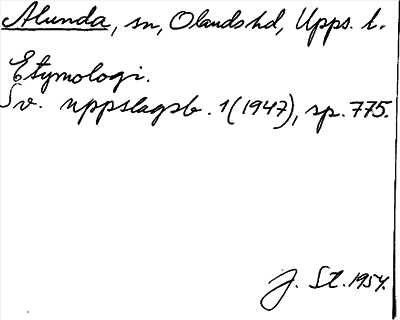 Alunda, sn, Olands hd, Upps. l.
Etymologi.
Sv. uppslagsb. 1(1947), sp. 775.
J. St. 1954.